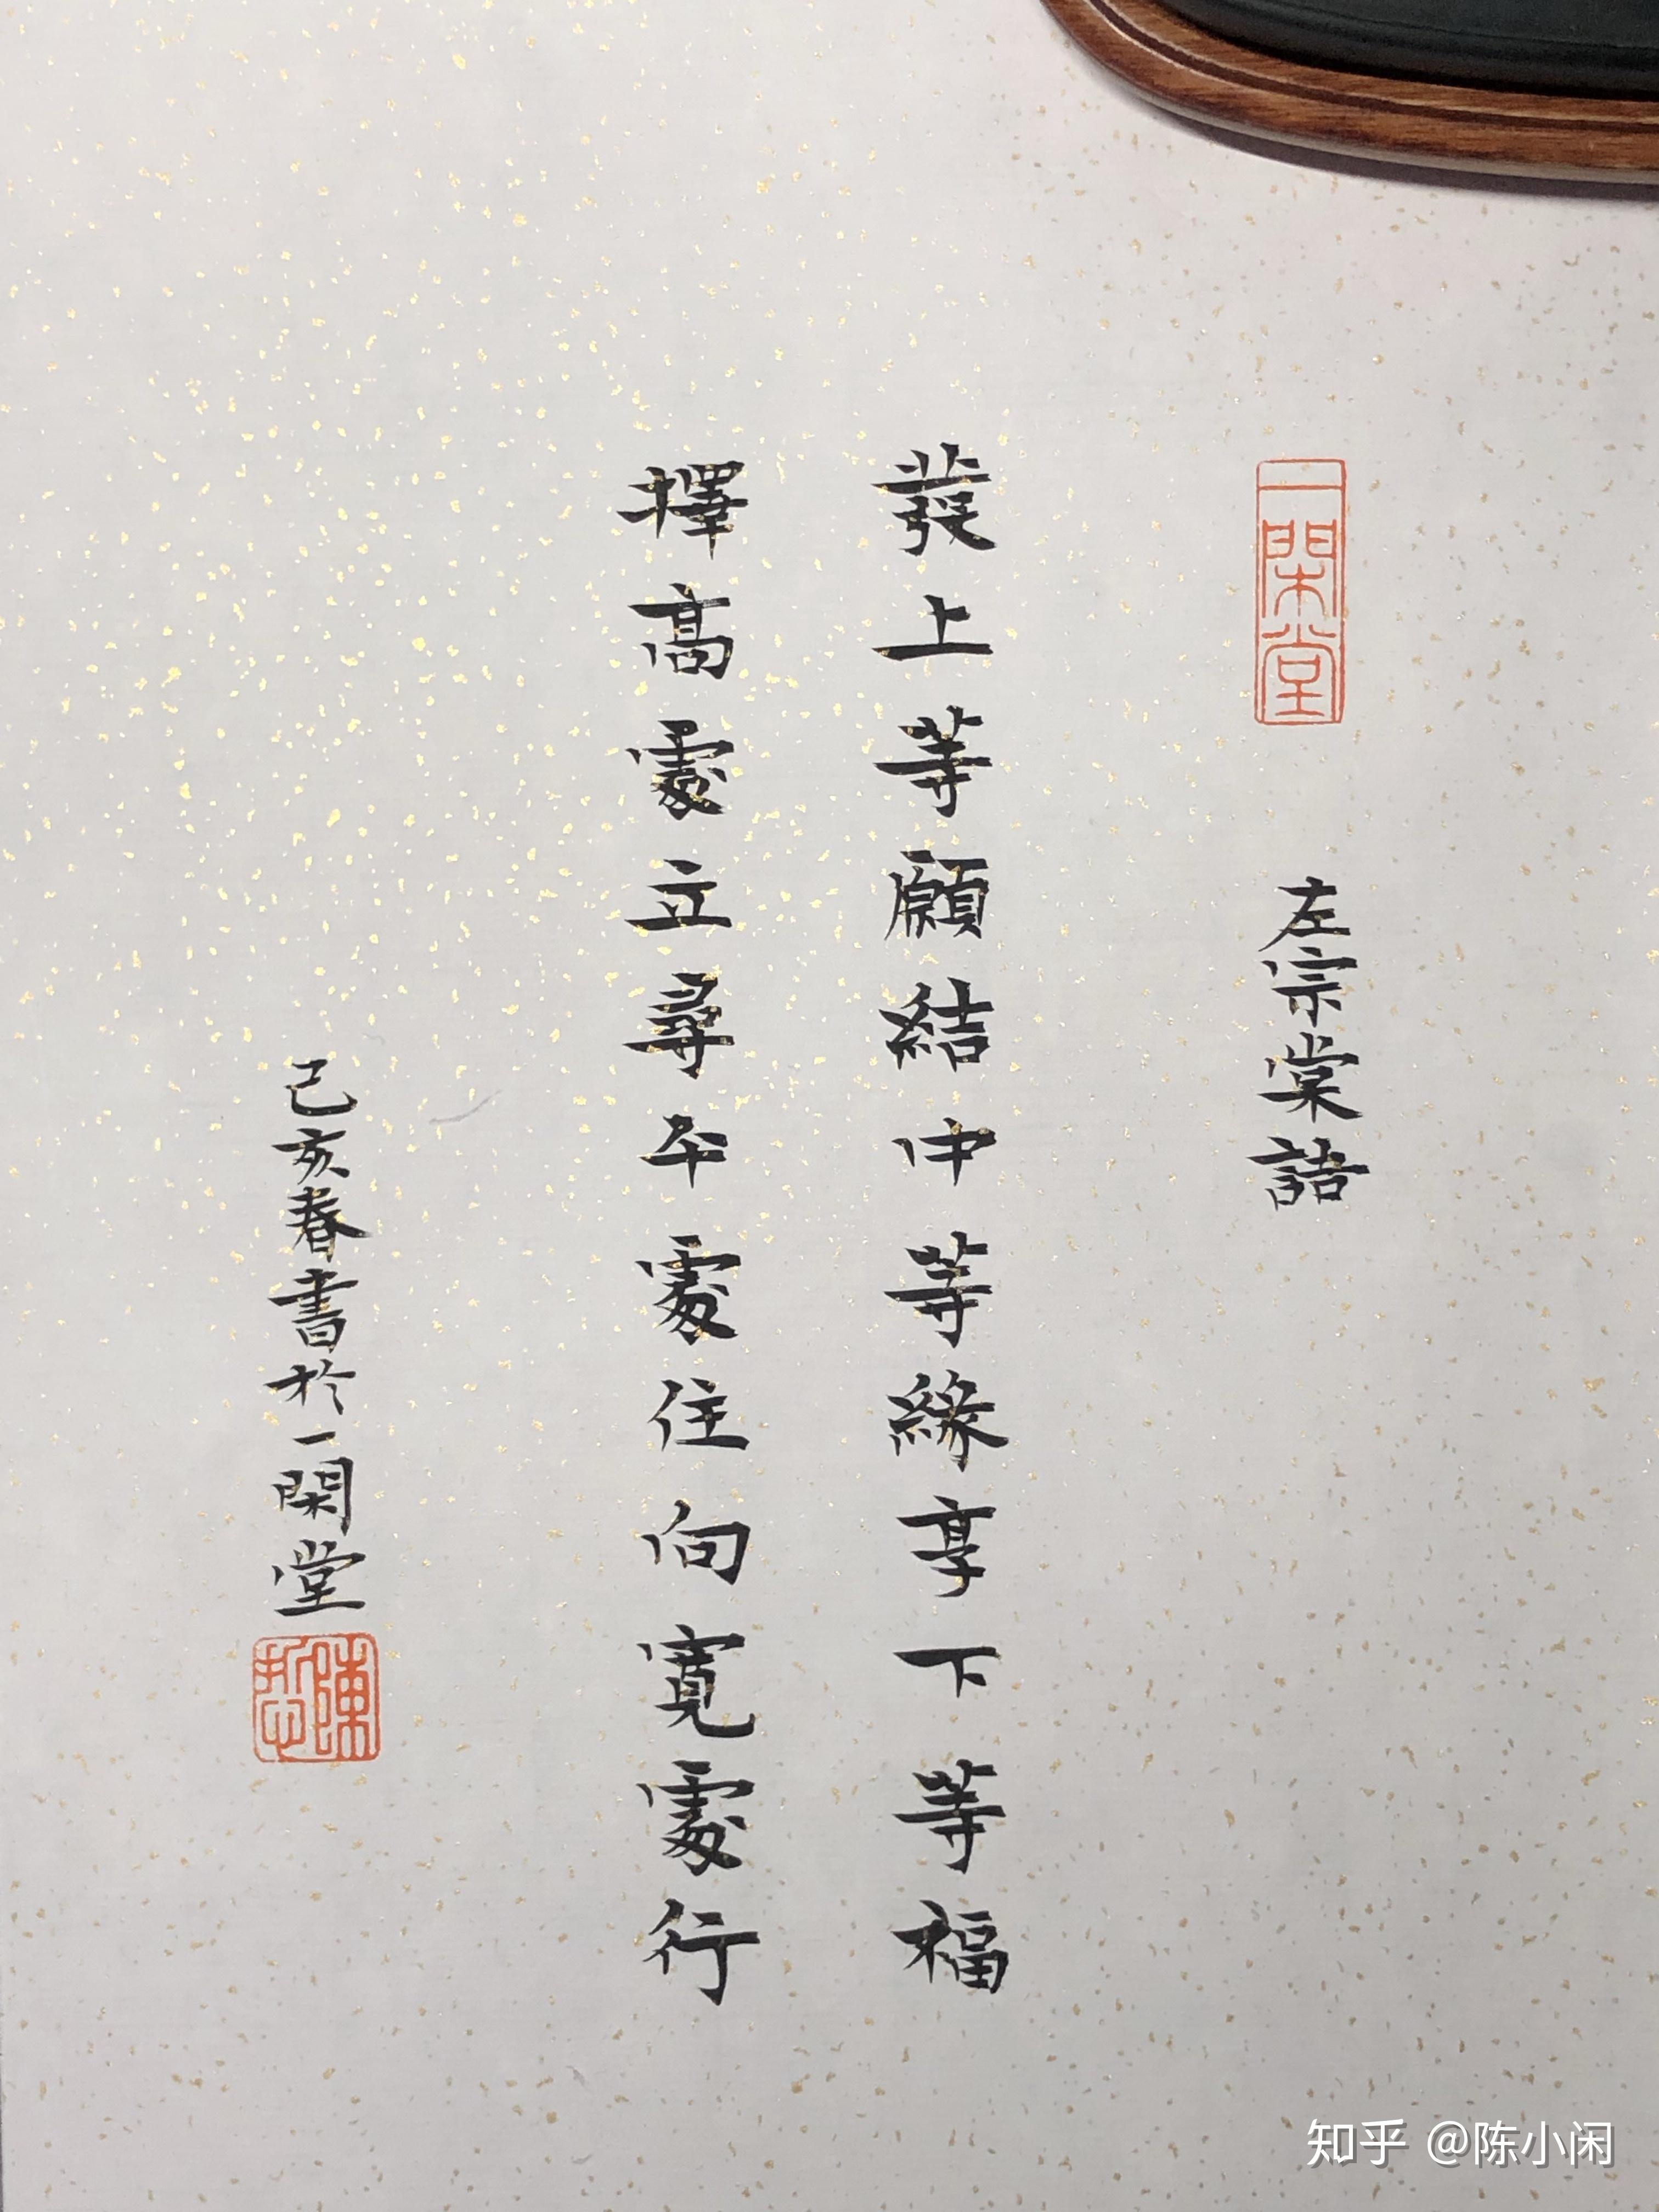 一閑堂
左宗棠語
發上等願結中等緣享下等福
擇高處立尋平處住向寬處行
己亥春書於一閑堂
知乎 @陈小闲